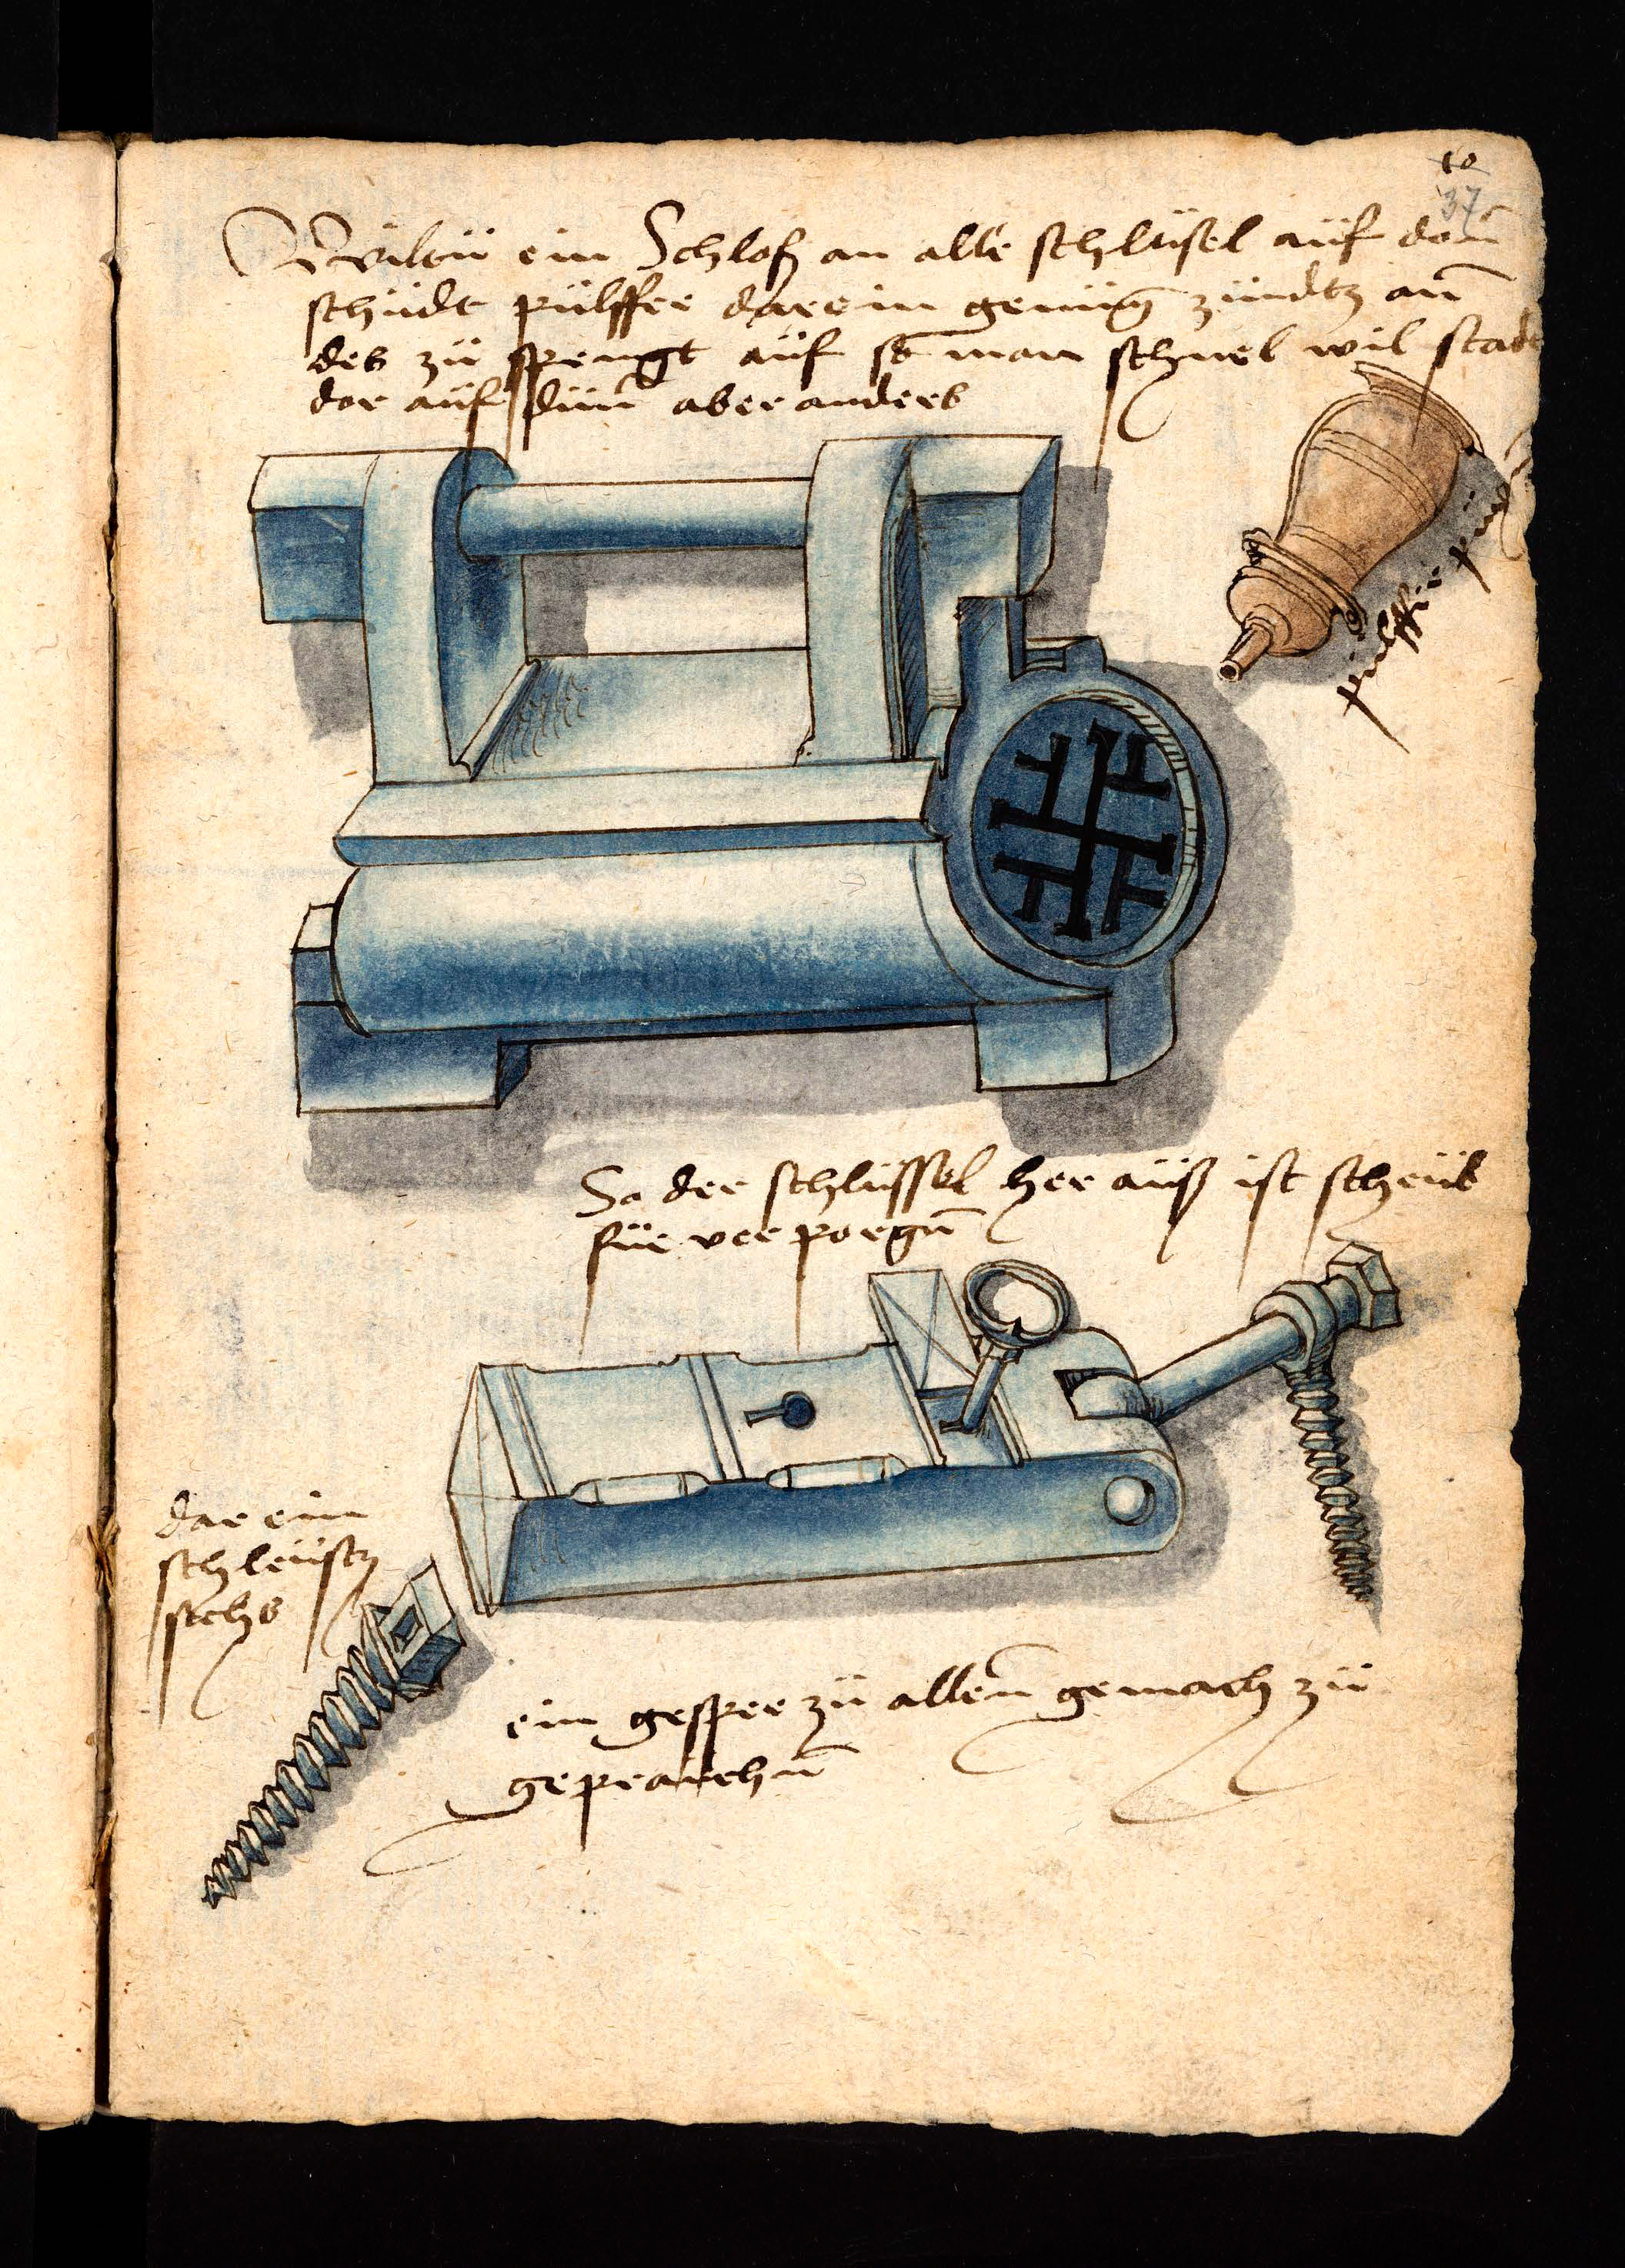 10
37
Wildu ein Schloss an alle schlüsel auf don
schudt pulffer darein genüg zündtz an
des zu sprengt auf so man schnel wil stadt
dor auf dun aber anders
pulffer
So der schlüssel her auß ist scheub
für ver porgn
dar ein
schleust
sichs
ein gesper zu allen gemach zu
geprauchn